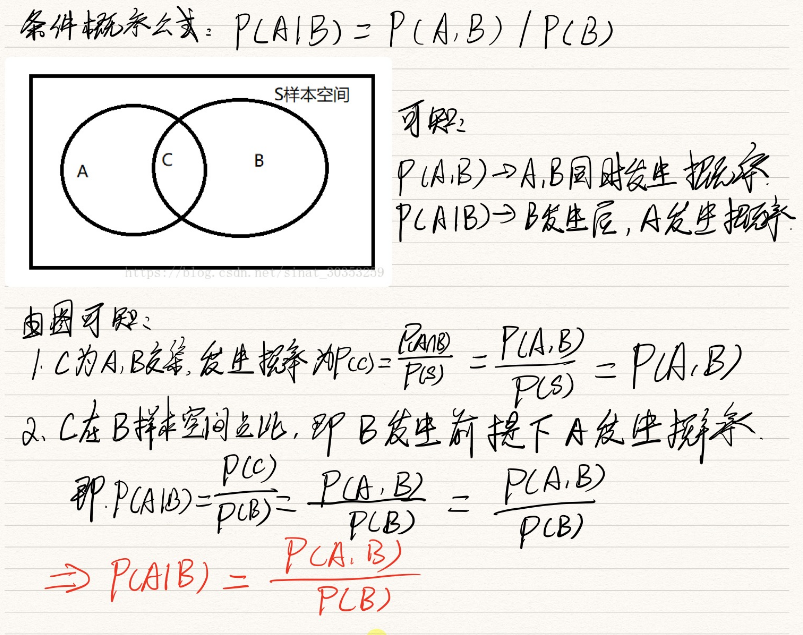 条件概率公式: P(A|B) = P(A,B) / P(B)
S样本空间
A C B
https://blog.csdn.net/sinat_30353259
可知:
P(A,B)→A,B同时发生概率.
P(A|B)→B发生后,A发生概率.
由图可知:
1. C为A,B交集,发生概率为P(C)=P(A∩B)/P(S) = P(A,B)/P(S) = P(A,B)
2、C在B样本空间占比,即B发生前提下A发生概率.
即.P(A|B)=P(C)/P(B)=P(A,B)/P(B) = P(A,B)/P(B)
⇒ P(A|B) = P(A,B)/P(B)